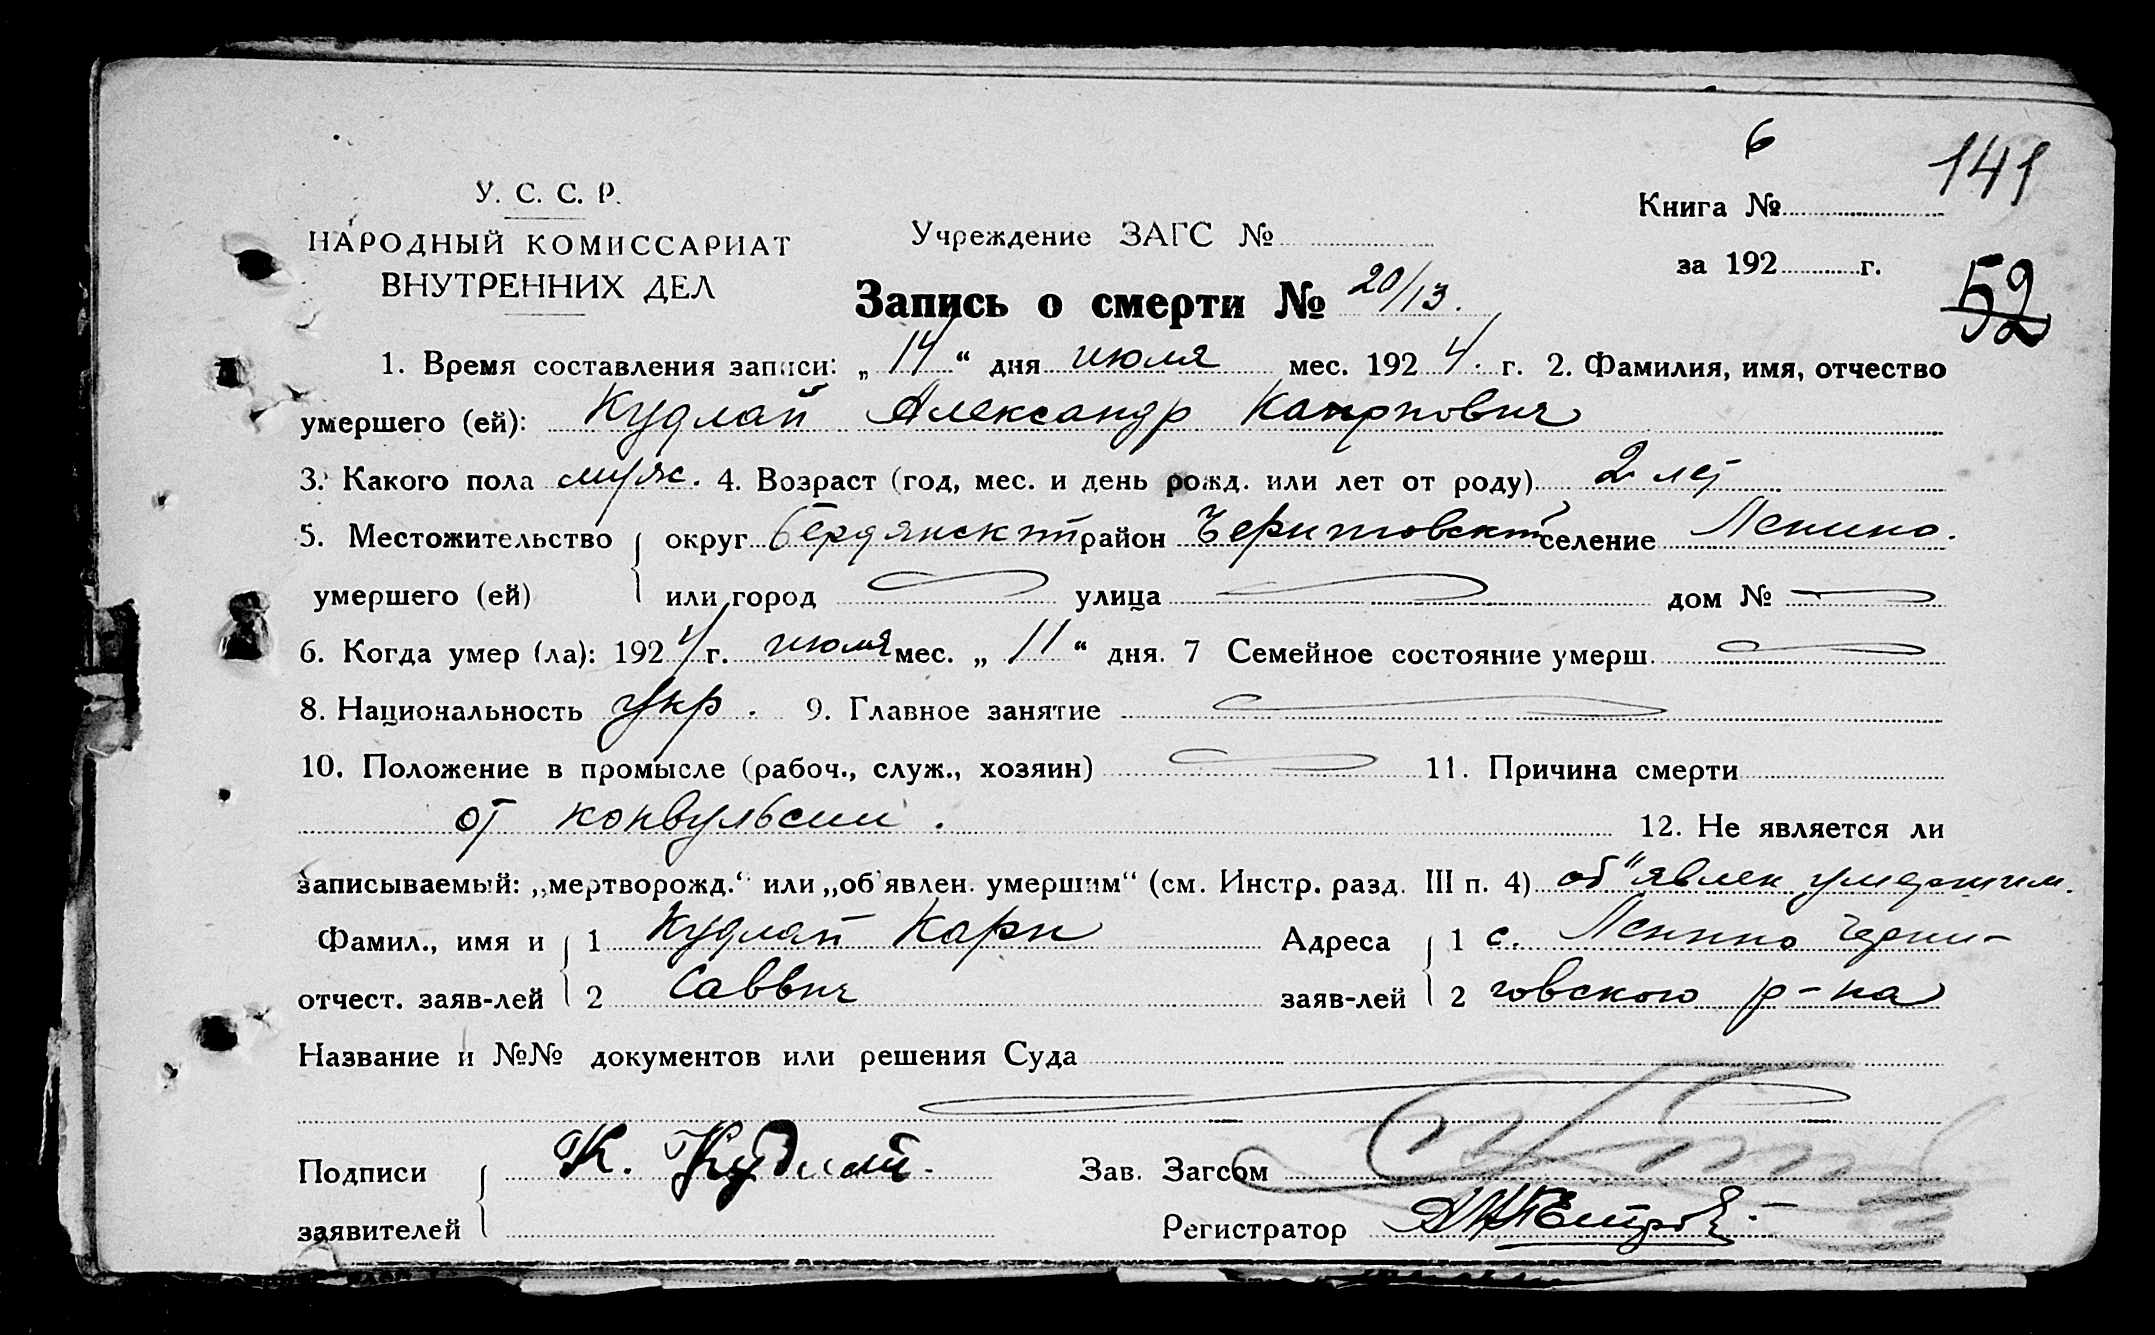 6
141
У. С. С. Р.
Книга №
НАРОДНЫЙ КОМИССАРИАТ
Учреждение ЗАГС №
за 192 г.
ВНУТРЕННИХ ДЕЛ
52
Запись о смерти № 20/13.
1. Время составления записи: „14“ дня июля мес. 1924. г. 2. Фамилия, имя, отчество
умершего (ей): Кудлай Александр Карпович
3. Какого пола муж. 4. Возраст (год, мес. и день рожд. или лет от роду) 2 лет
5. Местожительство округ Бердянский район Черниговский селение Ленино.
умершего (ей) или город улица дом №
6. Когда умер (ла): 1924 г. июля мес. „11“ дня. 7 Семейное состояние умерш.
8. Национальность укр. 9. Главное занятие
10. Положение в промысле (рабоч., служ., хозяин) 11. Причина смерти
от конвульсии. 12. Не является ли
записываемый: „мертворожд.“ или „об'явлен. умершим“ (см. Инстр. разд. III п. 4) об"явлен умершим.
Фамил., имя и 1 Кудлай Карп Адреса 1 с. Ленино Черни-
отчест. заяв-лей 2 Саввич заяв-лей 2 говского р-на
Название и №№ документов или решения Суда
Подписи К. Кудлай. Зав. Загсом
заявителей Регистратор